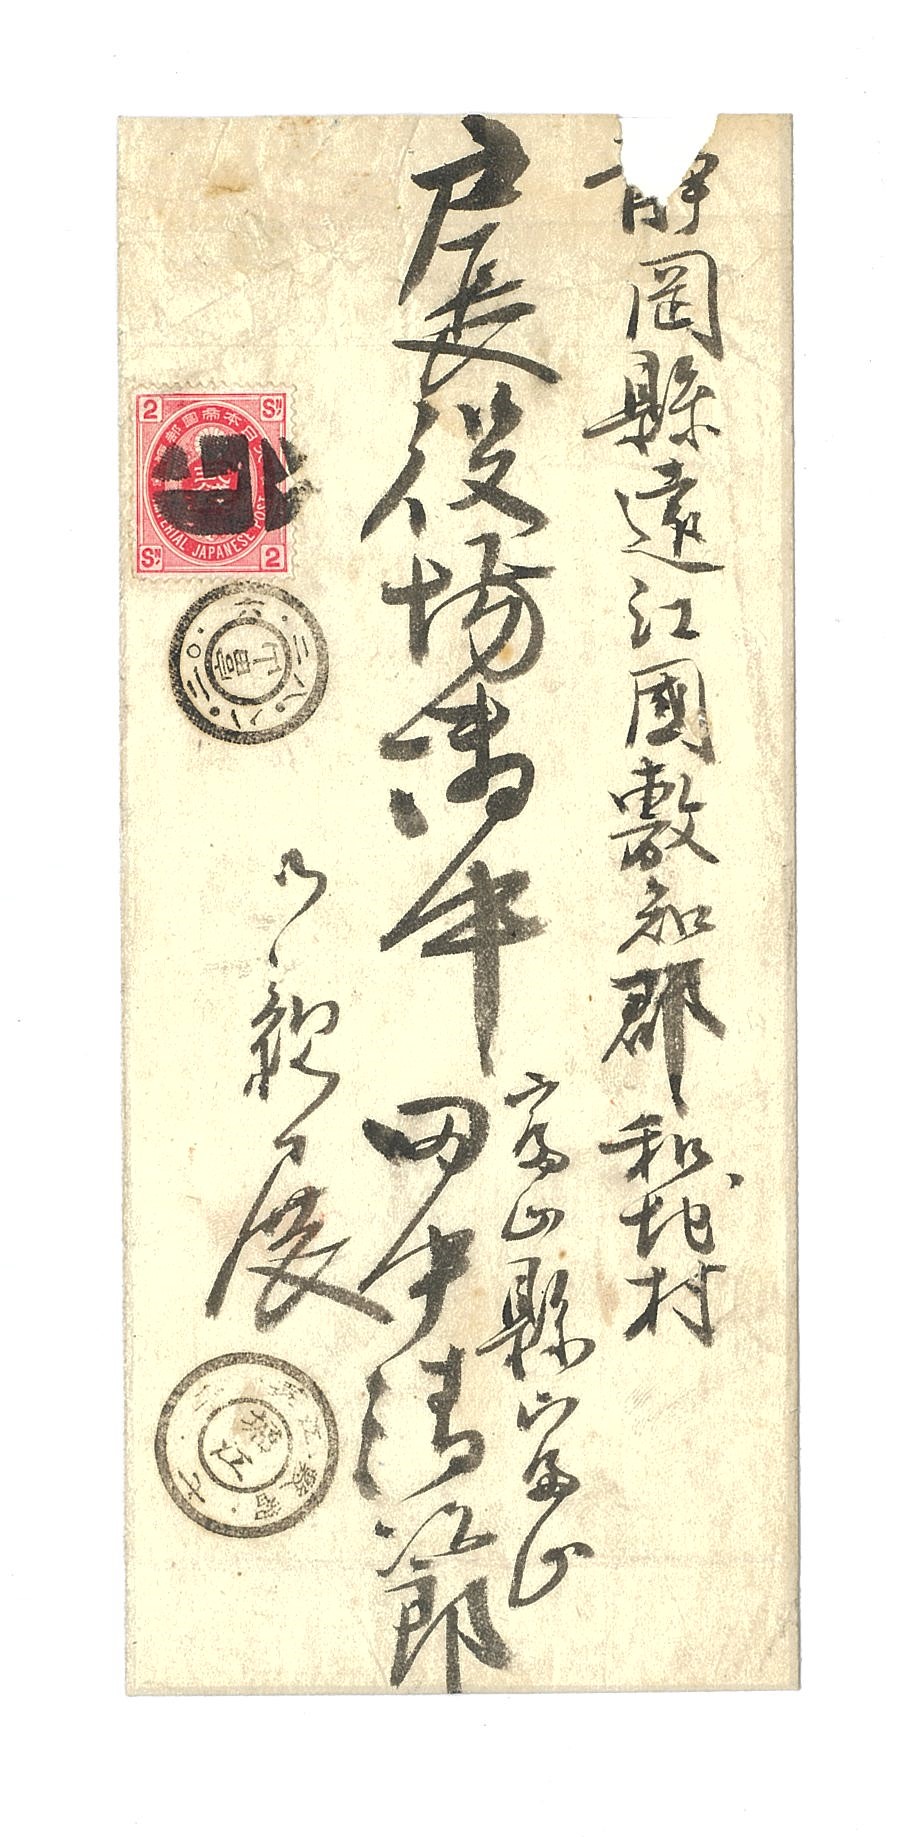 静岡縣遠江國敷知郡和地村
戸長役場御中
富山縣富山
田中清次郎
御親展
2 SN
大日本帝國郵便
IMPERIAL JAPANESE POST
SN 2
堀江